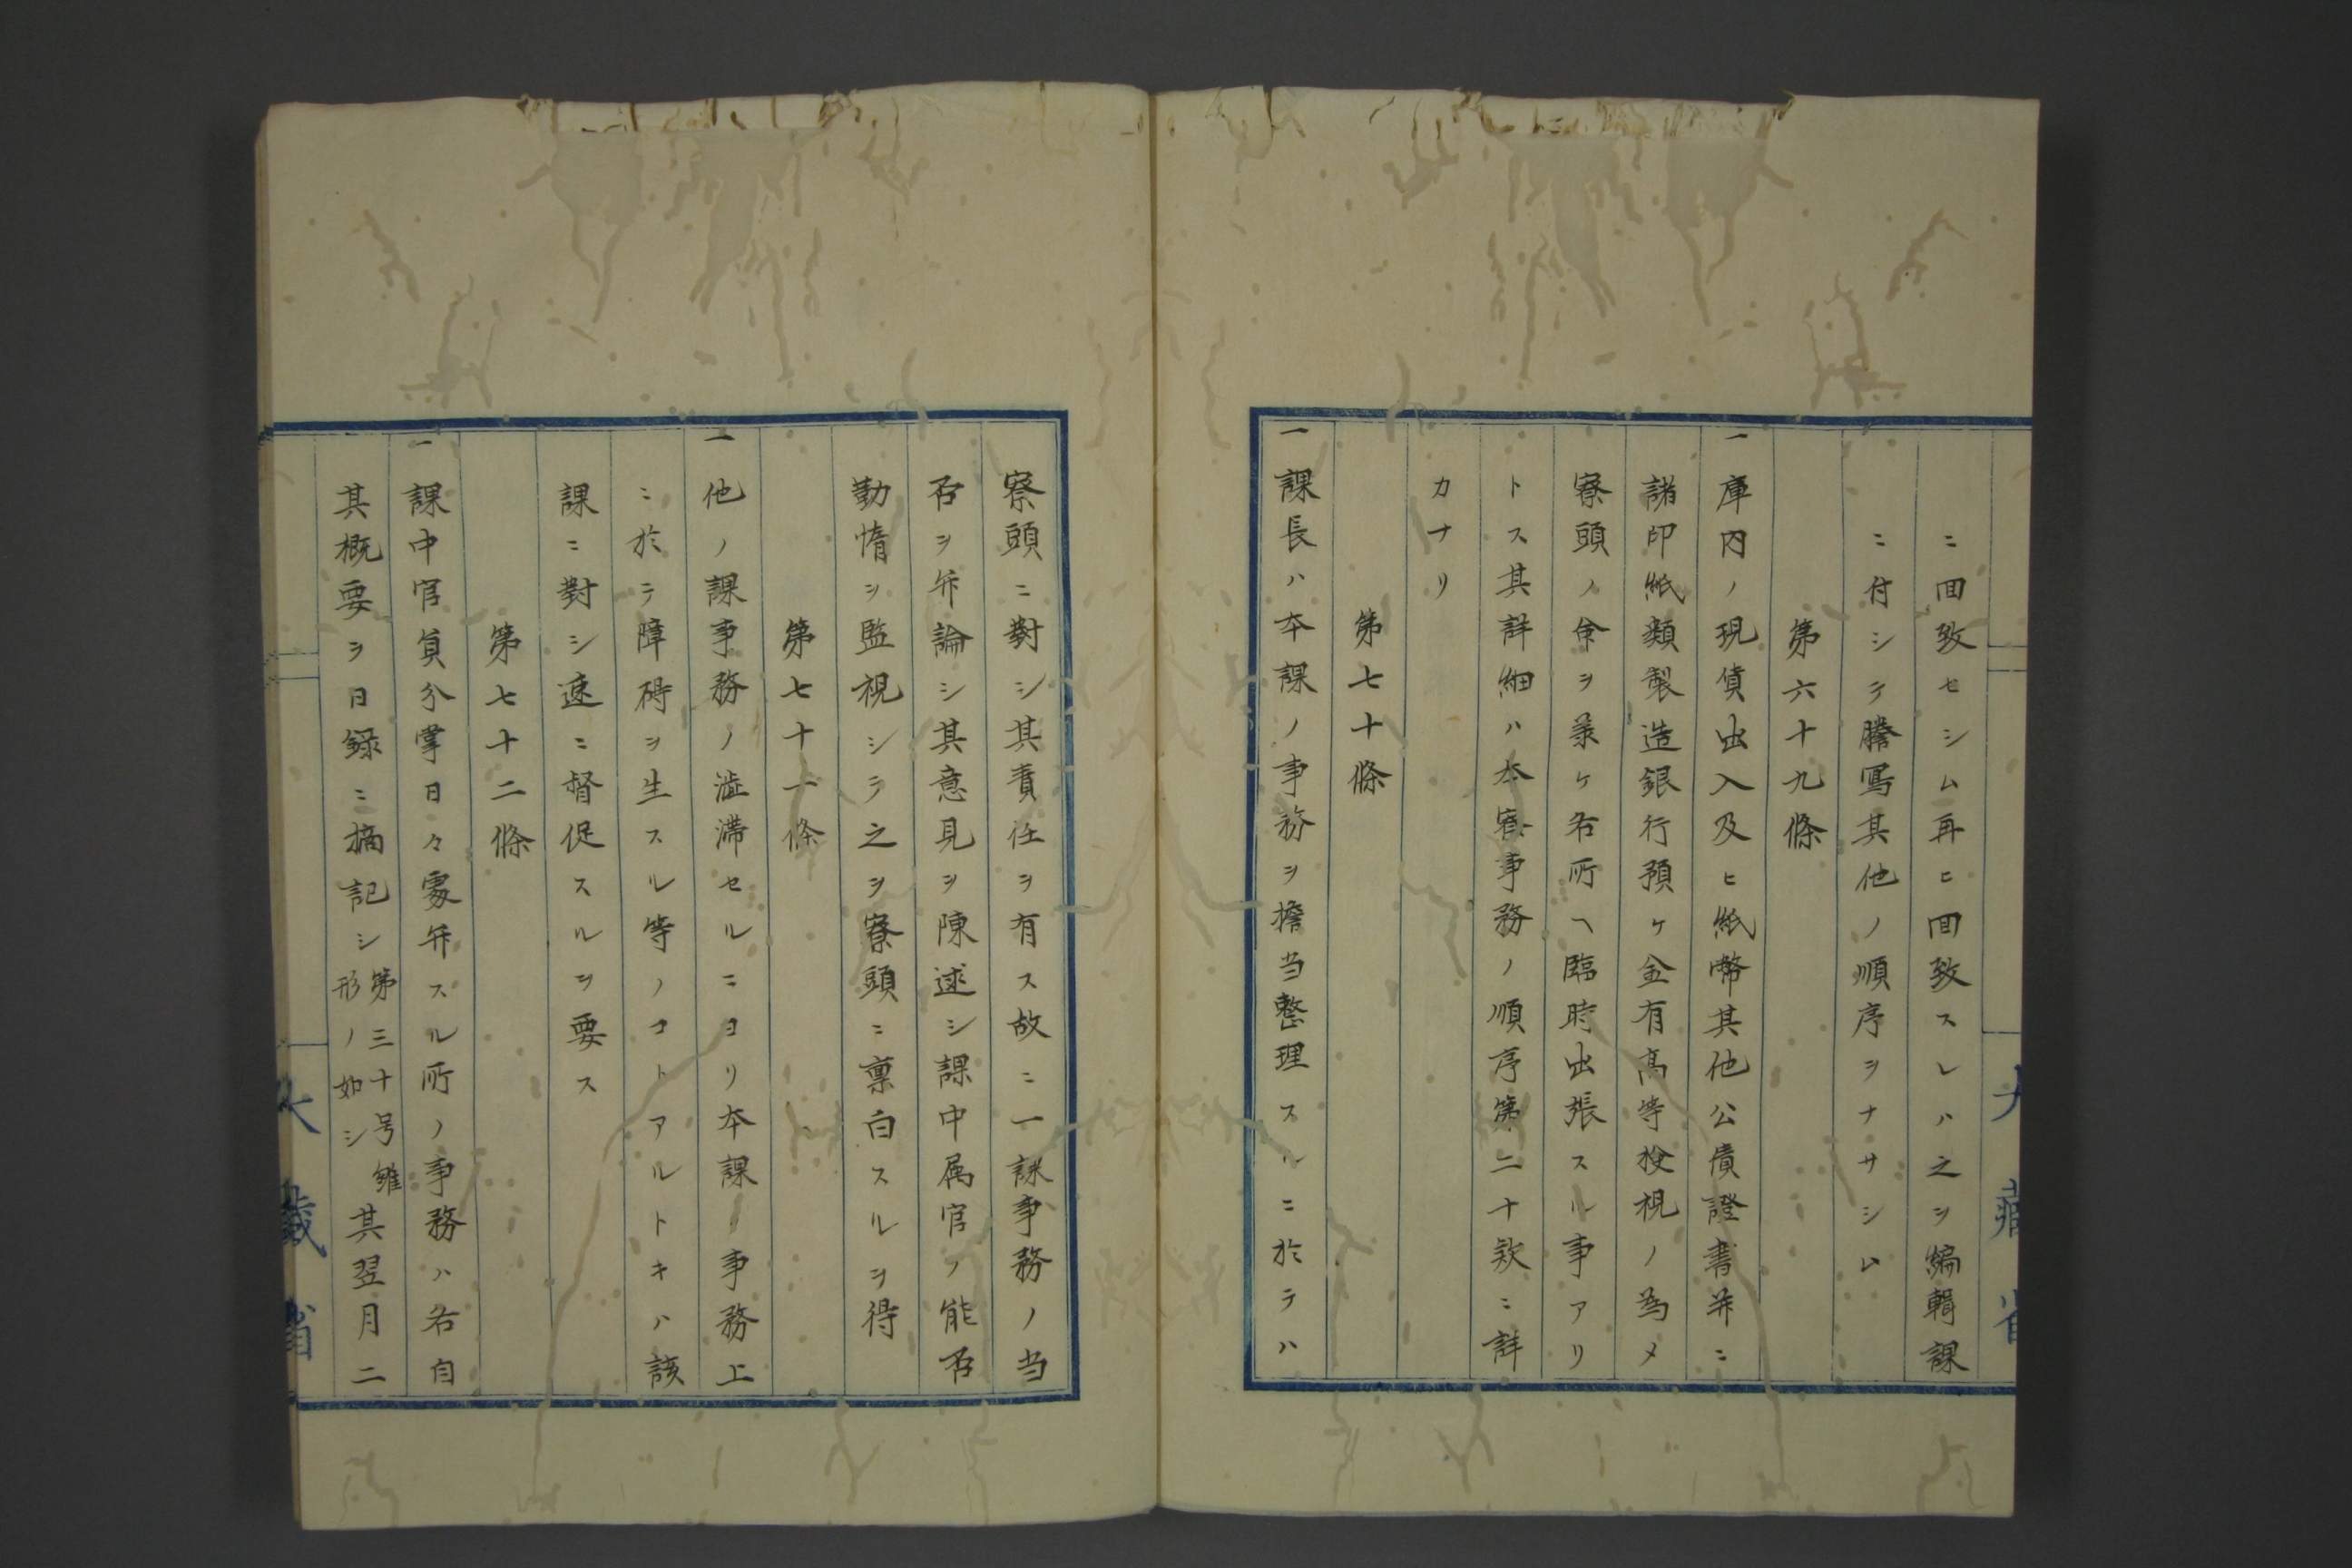 ニ回致セシム再ヒ回致スレハ之ヲ編輯課
ニ付シテ謄寫其他ノ順序ヲナサシム
第六十九條
一庫内ノ現貨出入及ヒ紙幣其他公債證書并ニ
諸印紙類製造銀行預ケ金有高等撿視ノ為メ
寮頭ノ命ヲ承ケ各所ヘ臨時出張スル事アリ
トス其詳細ハ本寮事務ノ順序第二十款ニ詳
カナリ
第七十條
一課長ハ本課ノ事務ヲ擔当整理スルニ於テハ
寮頭ニ對シ其責任ヲ有ス故ニ一課事務ノ当
否ヲ弁論シ其意見ヲ陳述シ課中属官ノ能否
勤惰ヲ監視シテ之ヲ寮頭ニ稟白スルヲ得
第七十一條
一他ノ課事務ノ澁滞セルニヨリ本課ノ事務上
ニ於テ障碍ヲ生スル等ノコトアルトキハ該
課ニ對シ速ニ督促スルヲ要ス
第七十二條
一課中官員分掌日々處弁スル所ノ事務ハ各自
其概要ヲ日録ニ摘記シ第三十号雛形ノ如シ其翌月二
大藏省
大藏省